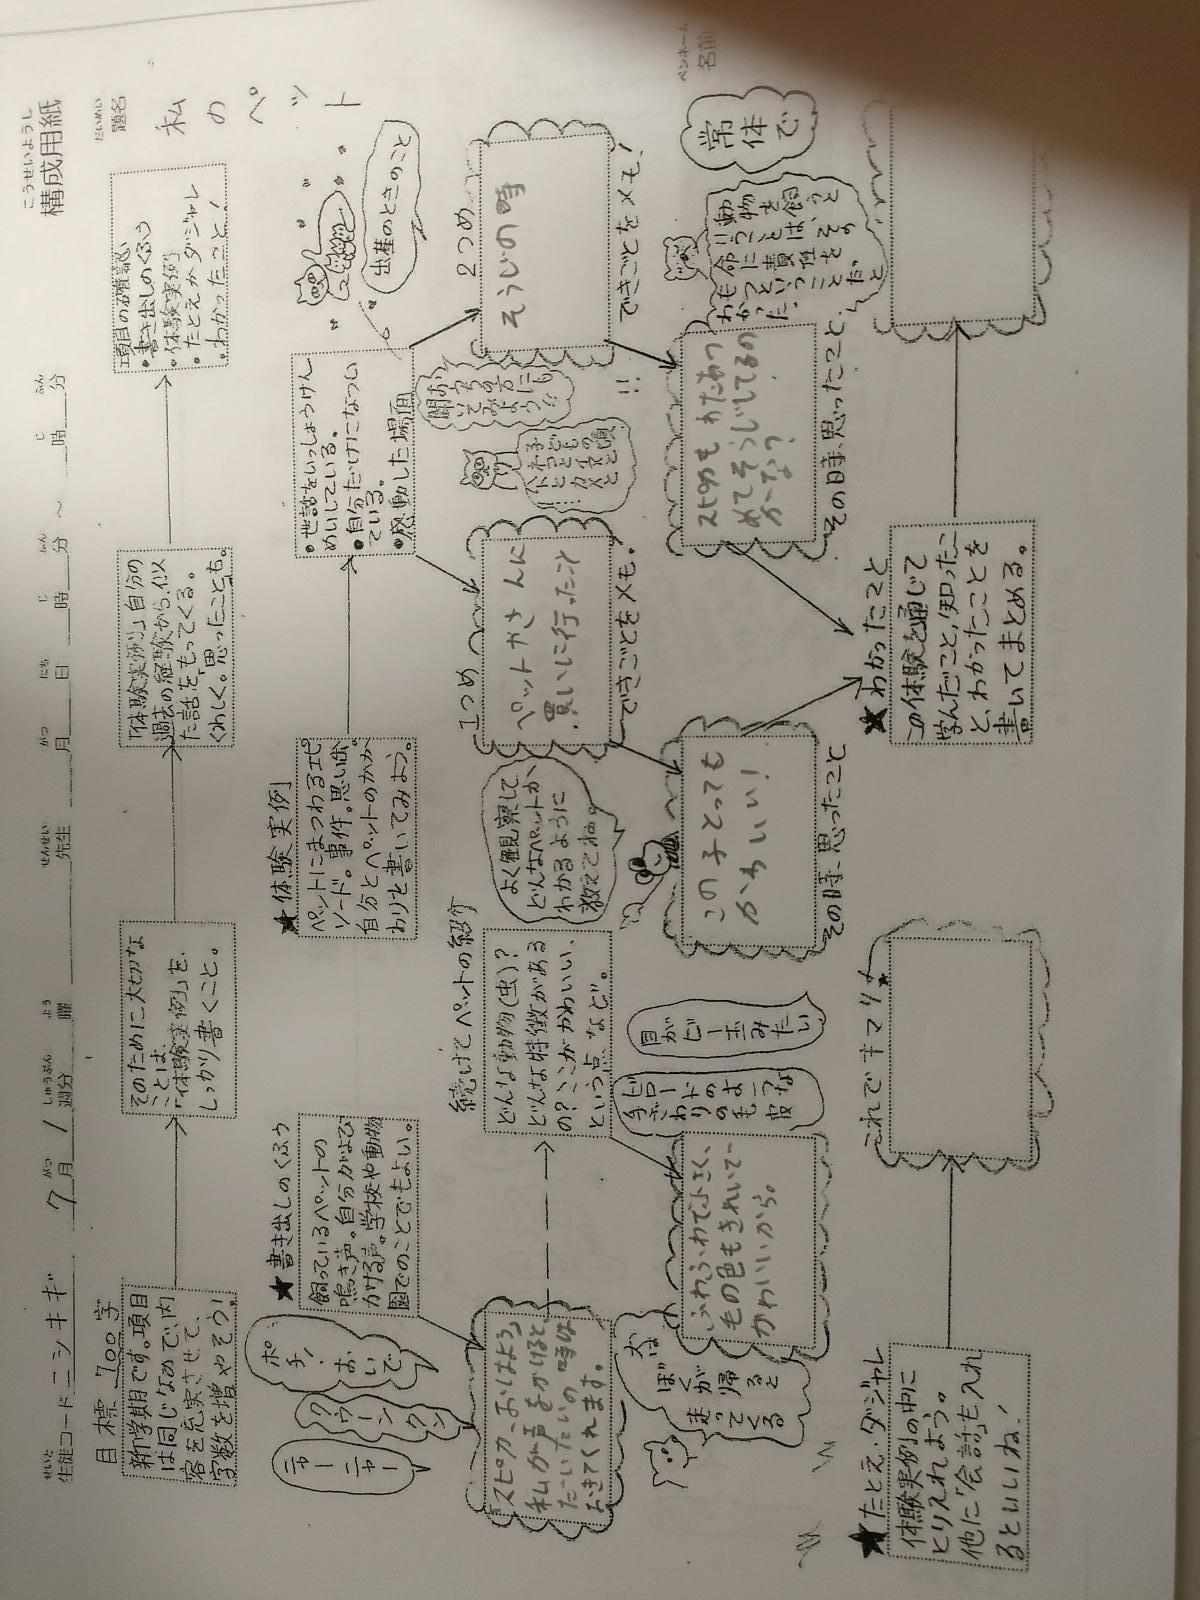 こうせいようし
構成用紙
せいと
生徒コード ニシキギ 7月 1週分 曜 先生 月 日 時 分 ～ 時 分
がつ しゅうぶん よう せんせい がつ にち じ ふん じ ふん
だいめい
題名
私のペット
ペンネーム
名前
目標 700字
新学期です。項目
は同じなので、内
容を充実させて、
字数を増やそう!
そのために大切な
ことは、
「体験実例」を、
しっかり書くこと。
「体験実例」自分の
過去の経験から、似
た話をもってくる。
くわしく。思ったことも。
項目の確認
・書き出しのくふう
・体験実例
・たとえかダジャレ
・わかったこと!
★書き出しのくふう
飼っているペットの
鳴き声。自分がよび
かける声。学校や動物
園でのことでもよい。
ニャーニャー
クゥーンクン
ポチ!おいで
「スピカ、おはよう」
私が声をかけると、
だいたいの時は
おきてくれます。
続けてペットの紹介
どんな動物(虫)?
どんな特徴がある
の?ここがかわいい、
という点、など。
よく観察して、
どんなペットか
わかるように
教えてね。
犬は
ぼくが
帰ると
走って
くる
ふわふわで小さく、
毛の色もきれいで
かわいいから。
ビロードの
手ざわりの
ような
毛皮
目が
ビー玉
みたい
★体験実例
ペットにまつわるエピ
ソード。事件。思い出。
自分とペットのかか
わりを書いてみよう。
・世話をいっしょうけん
めいしている。
・自分だけになつい
ている。
・感動した場面
出産のときのこと
1つめ
ペットやさんに
買いに行ったこと
できごとをメモ。
この子とっても
かわいい!
その時、思ったこと
おうちの方にも
聞いてみよう!!
2つめ
そうじの時
できごとをメモ!
!!
スピカも
その時、思ったこと、
動物を飼うと
いうことは、その
命に責任を
もつということだと
わかった。
常体で
★たとえ・ダジャレ
体験実例の中に
とり入れよう。
他に「会話」も入れ
るといいね!
これでキマリ★
★わかったこと
この体験を通じて
学んだこと、知ったこ
と、わかったことを
書いてまとめる。